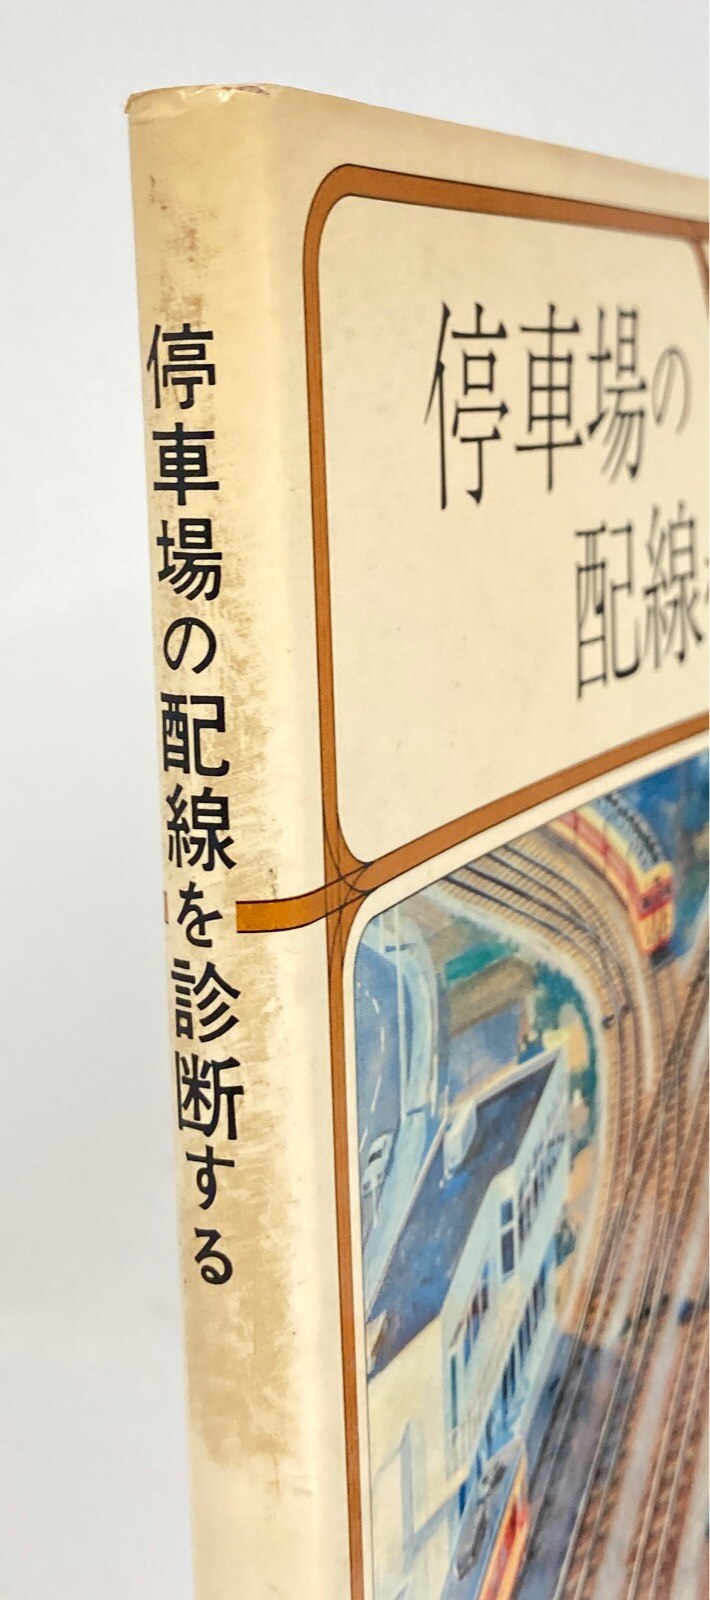 停車場の配線を診断する
停車場の
配線